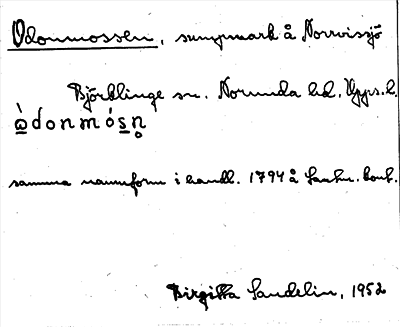 Odonmossen, sumpmark å Norrvissjö
Björklinge sn. Norunda hd. Upps. l.
ὼ̲donmós̲n̥
samma namnform i handl. 1794 å Lantm. kont.
Birgitta Sandelin, 1952